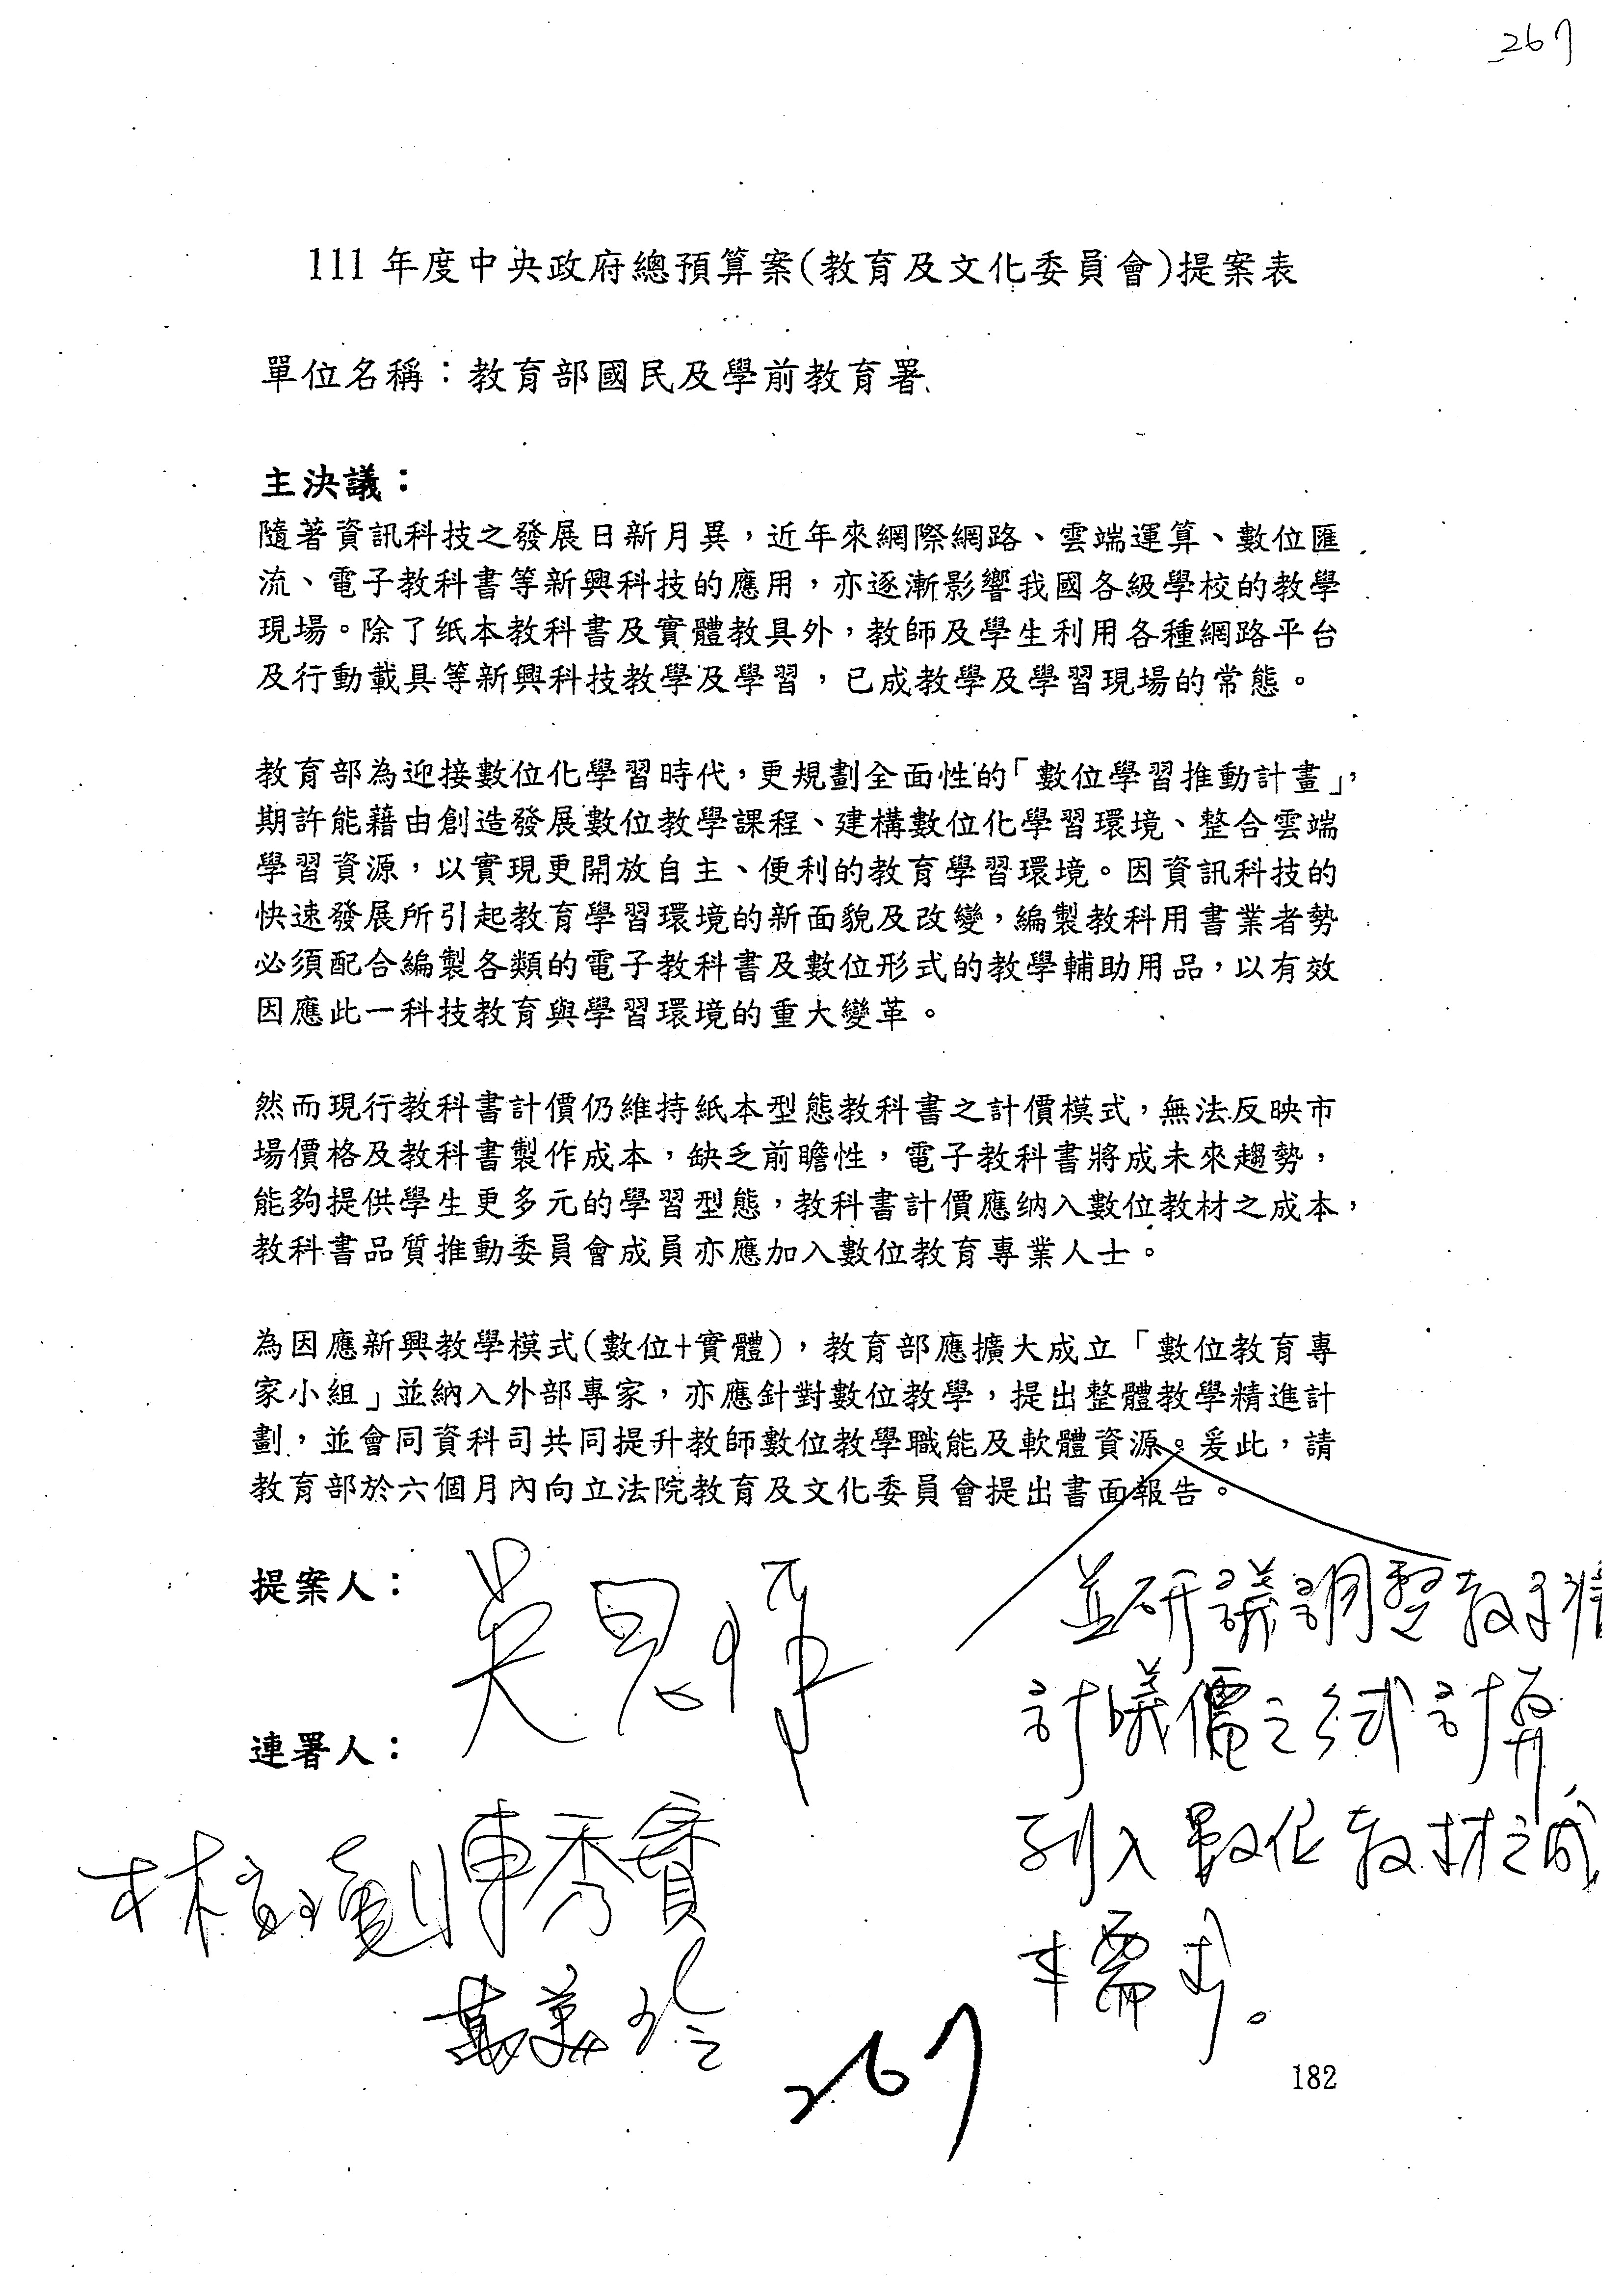 267
111 年度中央政府總預算案(教育及文化委員會)提案表
單位名稱：教育部國民及學前教育署
主決議：
隨著資訊科技之發展日新月異，近年來網際網路、雲端運算、數位匯
流、電子教科書等新興科技的應用，亦逐漸影響我國各級學校的教學
現場。除了紙本教科書及實體教具外，教師及學生利用各種網路平台
及行動載具等新興科技教學及學習，已成教學及學習現場的常態。
教育部為迎接數位化學習時代，更規劃全面性的「數位學習推動計畫」，
期許能藉由創造發展數位教學課程、建構數位化學習環境、整合雲端
學習資源，以實現更開放自主、便利的教育學習環境。因資訊科技的
快速發展所引起教育學習環境的新面貌及改變，編製教科用書業者勢
必須配合編製各類的電子教科書及數位形式的教學輔助用品，以有效
因應此一科技教育與學習環境的重大變革。
然而現行教科書計價仍維持紙本型態教科書之計價模式，無法反映市
場價格及教科書製作成本，缺乏前瞻性，電子教科書將成未來趨勢，
能夠提供學生更多元的學習型態，教科書計價應納入數位教材之成本，
教科書品質推動委員會成員亦應加入數位教育專業人士。
為因應新興教學模式(數位+實體)，教育部應擴大成立「數位教育專
家小組」並納入外部專家，亦應針對數位教學，提出整體教學精進計
劃，並會同資科司共同提升教師數位教學職能及軟體資源。爰此，請
教育部於六個月內向立法院教育及文化委員會提出書面報告。
提案人：
吳思
並研議調整教科
計議價之公式計算
列入數位教材之成
本需求。
連署人：
林 陳秀寳
萬美玲
267
182